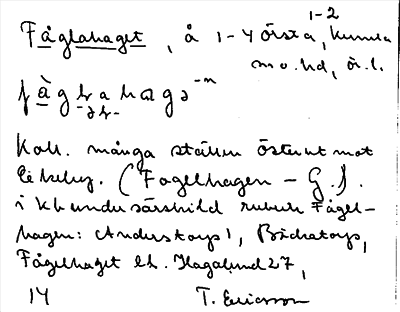 1-2
Fåglahaget, å 1-4 Örsta, Kumla
sn o. hd, ör. l.
fàglahagə -n
-əl-
Koll. många ställen österut mot
Ekeby. (Fogelhagen - G.S.
i Kb under särskild rubrik Fågel-
hagen: Anderstorp 1, Bickatorp,
Fågelhaget el. Hagalund 27,
14 T. Ericsson